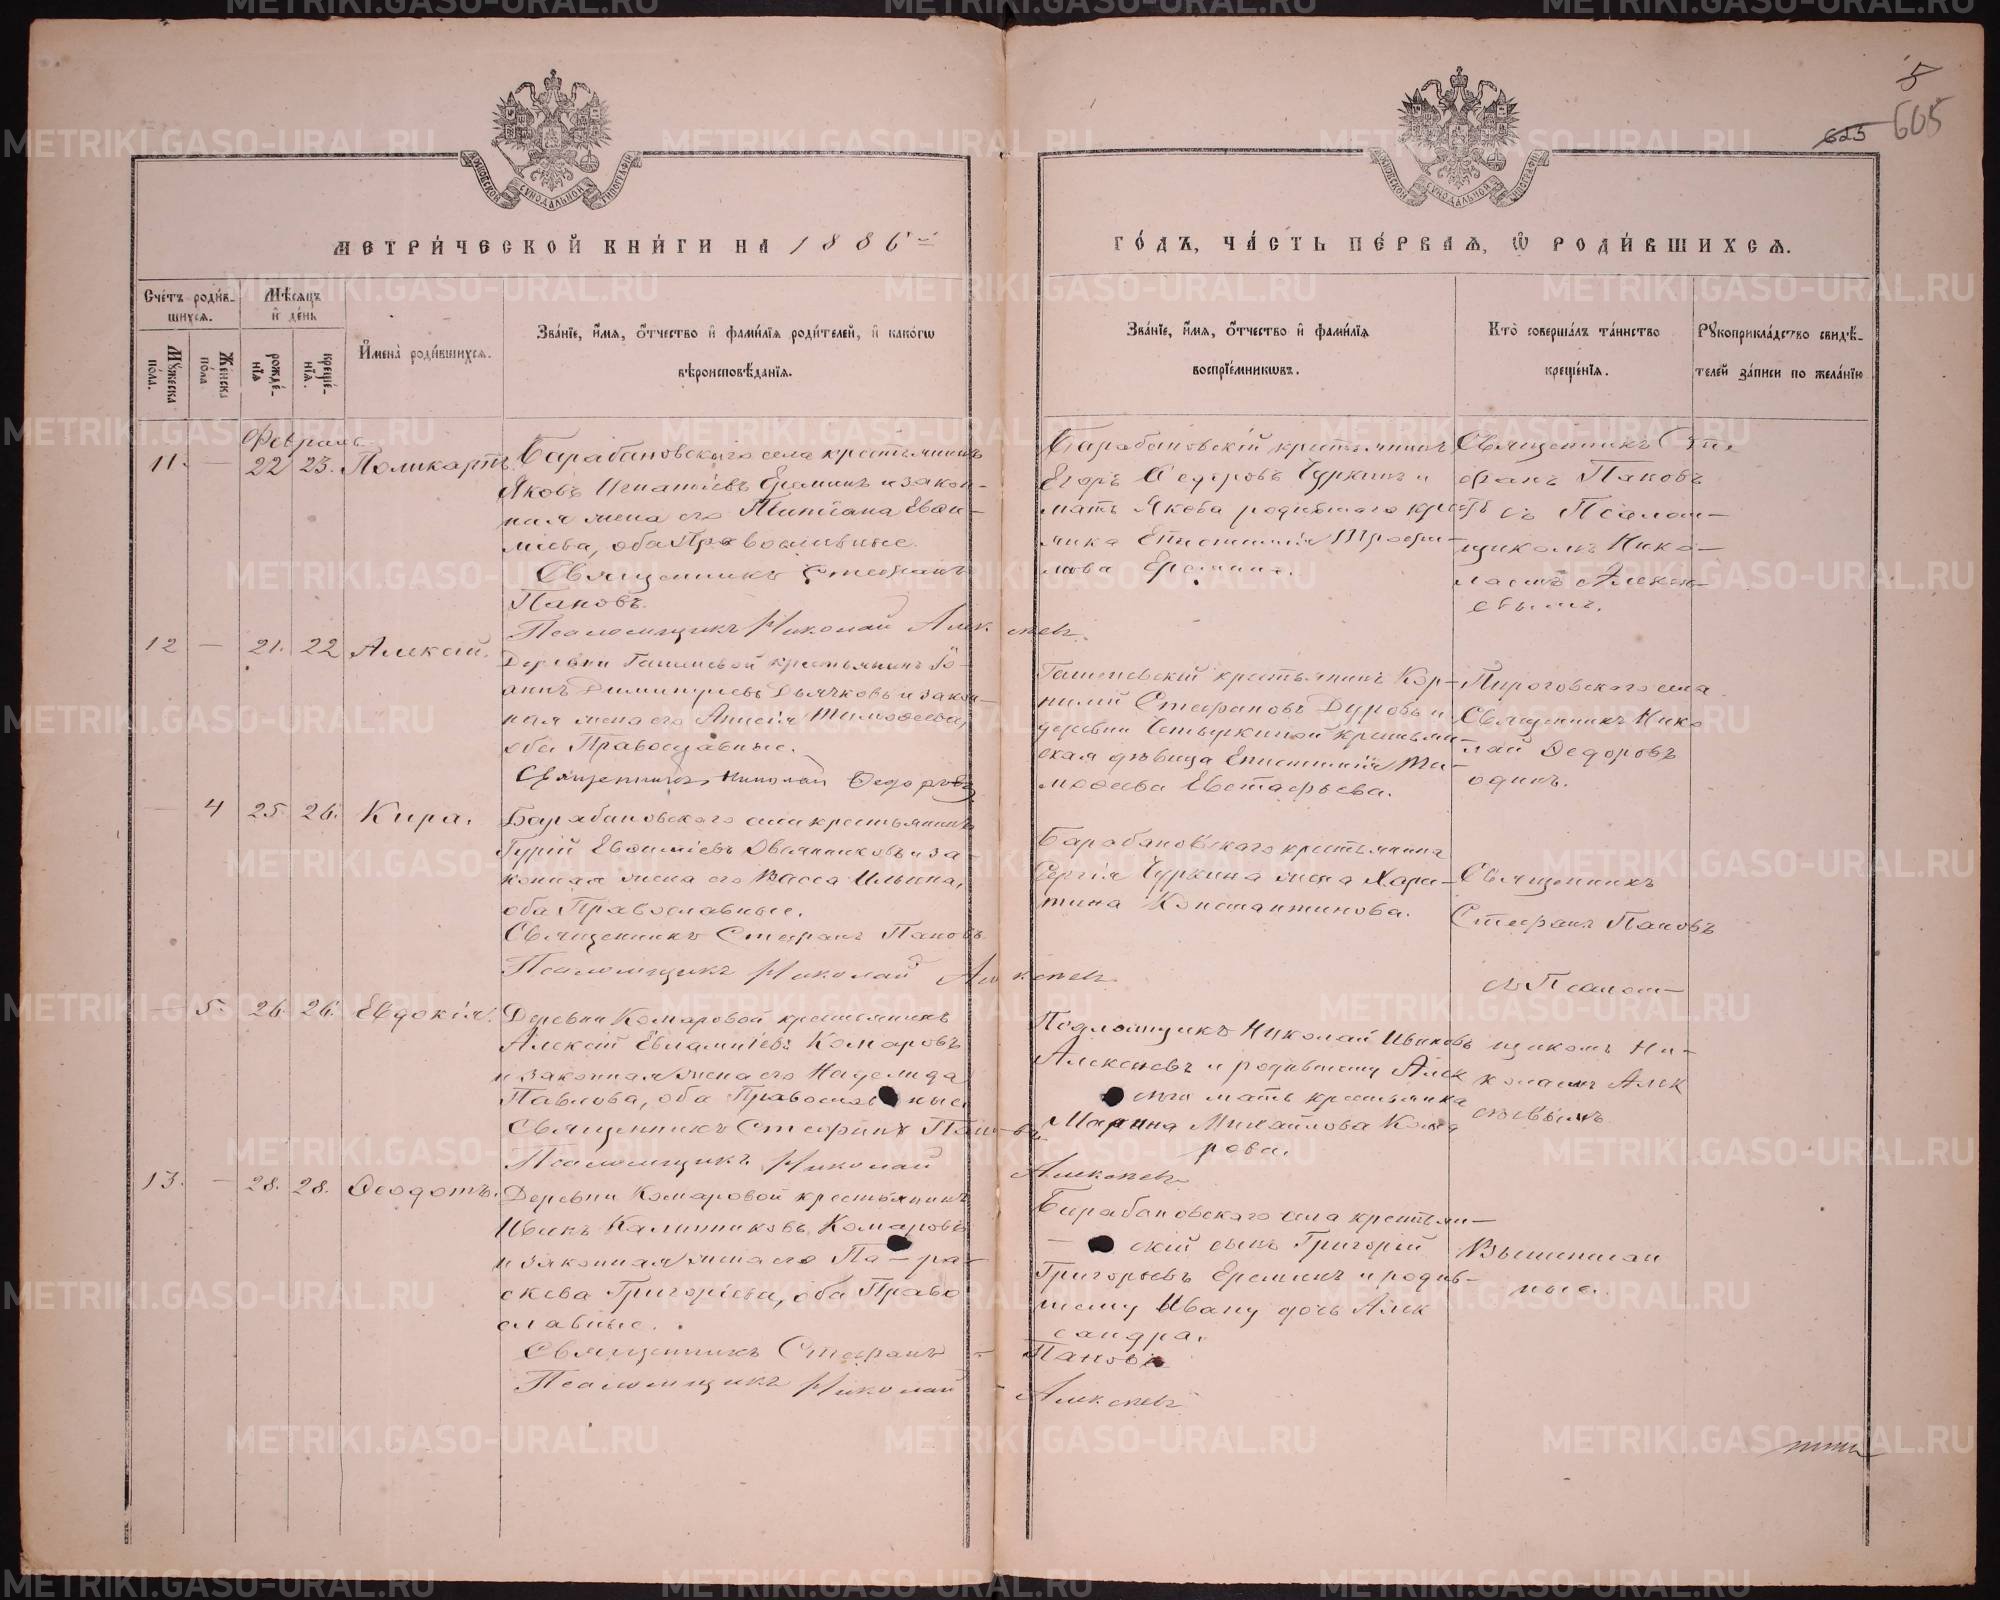 5
623 605
МЕТРИ́ЧЕСКОЙ КНИ́ГИ НА 1886й
ГО́ДЪ, ЧА́СТЬ ПЕ́РВАЯ, Ѡ РОДИ́ВШИХСЯ.
Сче́тъ роди́в-
шихся.
Мѣ́сяцъ
и де́нь
Му́жеска по́ла.
Же́нска по́ла
рожде́-
нїя
креще́-
нїя.
Имена̀ роди́вшихся.
Зва́нїе, и́мя, о́тчество и фами́лїя роди́телей, и како́гѡ
вѣроисповѣ́данїя.
Зва́нїе, и́мя, о́тчество и фами́лїя
воспрїе́мникѡвъ.
Кто̀ соверша́лъ та́инство
креще́нїя.
Рукоприкла́дство свидѣ́-
телей за́писи по жела́нїю
Февраль
11. — 22 23. Поликарпъ.
Барабановскаго села крестьянинъ
Яковъ Игнатіевъ Ереминъ и закон-
ная жена его Татіана Евфи-
міева, оба Православные.
Священникъ Стефанъ
Пановъ.
Псаломщикъ Николай Алексѣевъ.
Барабановскій крестьянинъ
Егоръ Ѳедоровъ Чуркинъ и
мать Якова родившаго кресть
янка Епистимія Трофи-
мова Еремина.
Священникъ Сте
фанъ Пановъ
съ Псалом-
щикомъ Нико-
лаемъ Алексѣ-
евымъ.
12 — 21. 22 Алексѣй.
Деревни Гашеневой крестьянинъ Іо-
аннъ Димитріевъ Дьячковъ и закон-
ная жена его Анисія Тимоѳеева,
оба Православные.
Священникъ Николай Ѳедоровъ
Гашеневскій крестьянинъ Кор-
нилій Стефановъ Дуровъ и
деревни Четыркиной крестьян-
ская дѣвица Епистимія Ти-
моѳеева Евстафьева.
Пироговскаго села
Священникъ Нико
лай Ѳедоровъ
одинъ.
— 4 25 26. Кира.
Барабановскаго села крестьянинъ
Гурій Евѳиміевъ Овсянниковъ и за
конная жена его Васса Ильина,
оба Православные.
Священникъ Стефанъ Пановъ
Псаломщикъ Николай Алексѣевъ
Барабановскаго крестьянина
Сергія Чуркина жена Хари-
тина Константинова.
Священникъ
Стефанъ Пановъ
съ Псалом-
щикомъ Ни-
колаемъ Алек
сѣевымъ.
— 5. 26. 26. Евдокія.
Деревни Комаровой крестьянинъ
Алексѣй Евлампіевъ Комаровъ
и законная жена его Надежда
Павлова, оба Православные
Священникъ Стефанъ Пановъ
Псаломщикъ Николай Алексѣевъ
Псаломщикъ Николай Ивановъ
Алексѣевъ и родившему Алек
сѣю мать крестьянка
Марина Михайлова Кома
рова.
13. — 28. 28. Ѳеодотъ.
Деревни Комаровой крестьянинъ
Иванъ Калинниковъ Комаровъ
и законная жена его Па-ра-
скева Григоріева, оба Право
славные.
Священникъ Стефанъ — Пановъ
Псаломщикъ Николай — Алексѣевъ
Барабановскаго села крестьян-
скій сынъ Григорій
Григорьевъ Ереминъ и родив-
шему Ивану дочь Алек
сандра.
Вышеписан
ные.